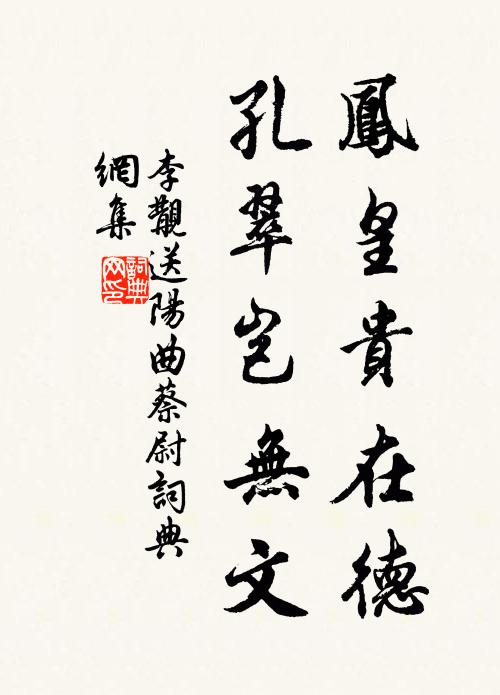 鳳皇貴在德
孔翠豈無文
李覯送陽曲蔡尉詞典
網集
詞典
网印